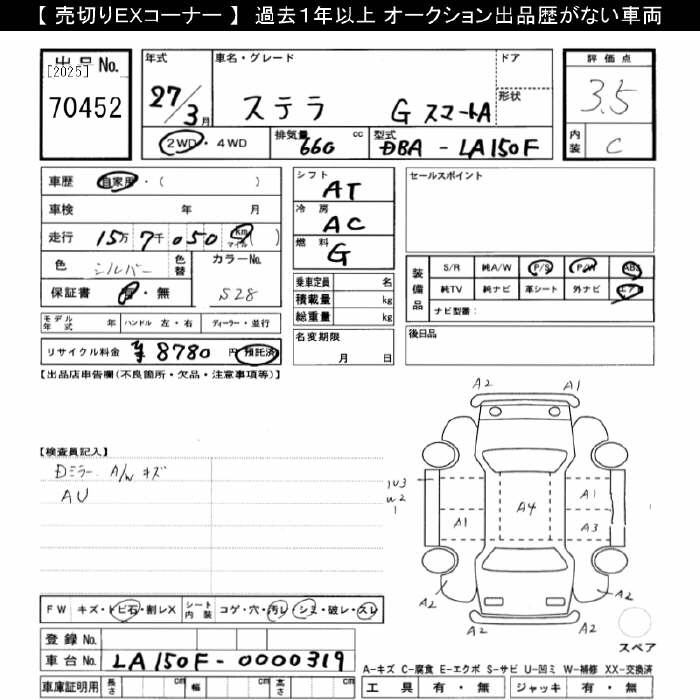 【 売切りEXコーナー 】 過去１年以上 オークション出品歴がない車両
出品No.
[2025]
70452
年式
27/3月
車名・グレード
ステラ G スマートA
ドア
形状
2WD・4WD
排気量 660 cc
型式 DBA - LA150F
評価点
3.5
内装 C
車歴 自家用・( )
車検 年 月
走行 15万 7千 050 km マイル ( )
色 シルバー 色替
カラーNo. S28
保証書 有・無
モデル年式 年 ハンドル 左・右 ディーラー・並行
リサイクル料金 ¥8780 円 預託済
シフト AT
冷房 AC
燃料 G
乗車定員 名
積載量 kg
総重量 kg
名変期限
月 日
セールスポイント
装備品
S/R 純A/W P/S P/W ABS
純TV 純ナビ 革シート 外ナビ エアB
ナビ型番：
後日品
【出品店申告欄(不良箇所・欠品・注意事項等)】
【検査員記入】
Dミラー A/W キズ
AU
A2 A1
1U3
W2
1
A1 A4 A1
A3
A2 A2
A2 A2
スペア
FW キズ・トビ石・割レX シート内装 コゲ・穴・汚レ・シミ・破レ・スレ
登録No.
車台No. LA150F-0000319
車庫証明用 長さ cm 幅 cm 高さ cm
A-キズ C-腐食 E-エクボ S-サビ U-凹ミ W-補修 XX-交換済
工具 有・無 ジャッキ 有・無